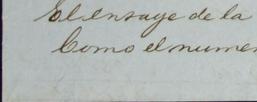 El ensaye de la
Como el numer